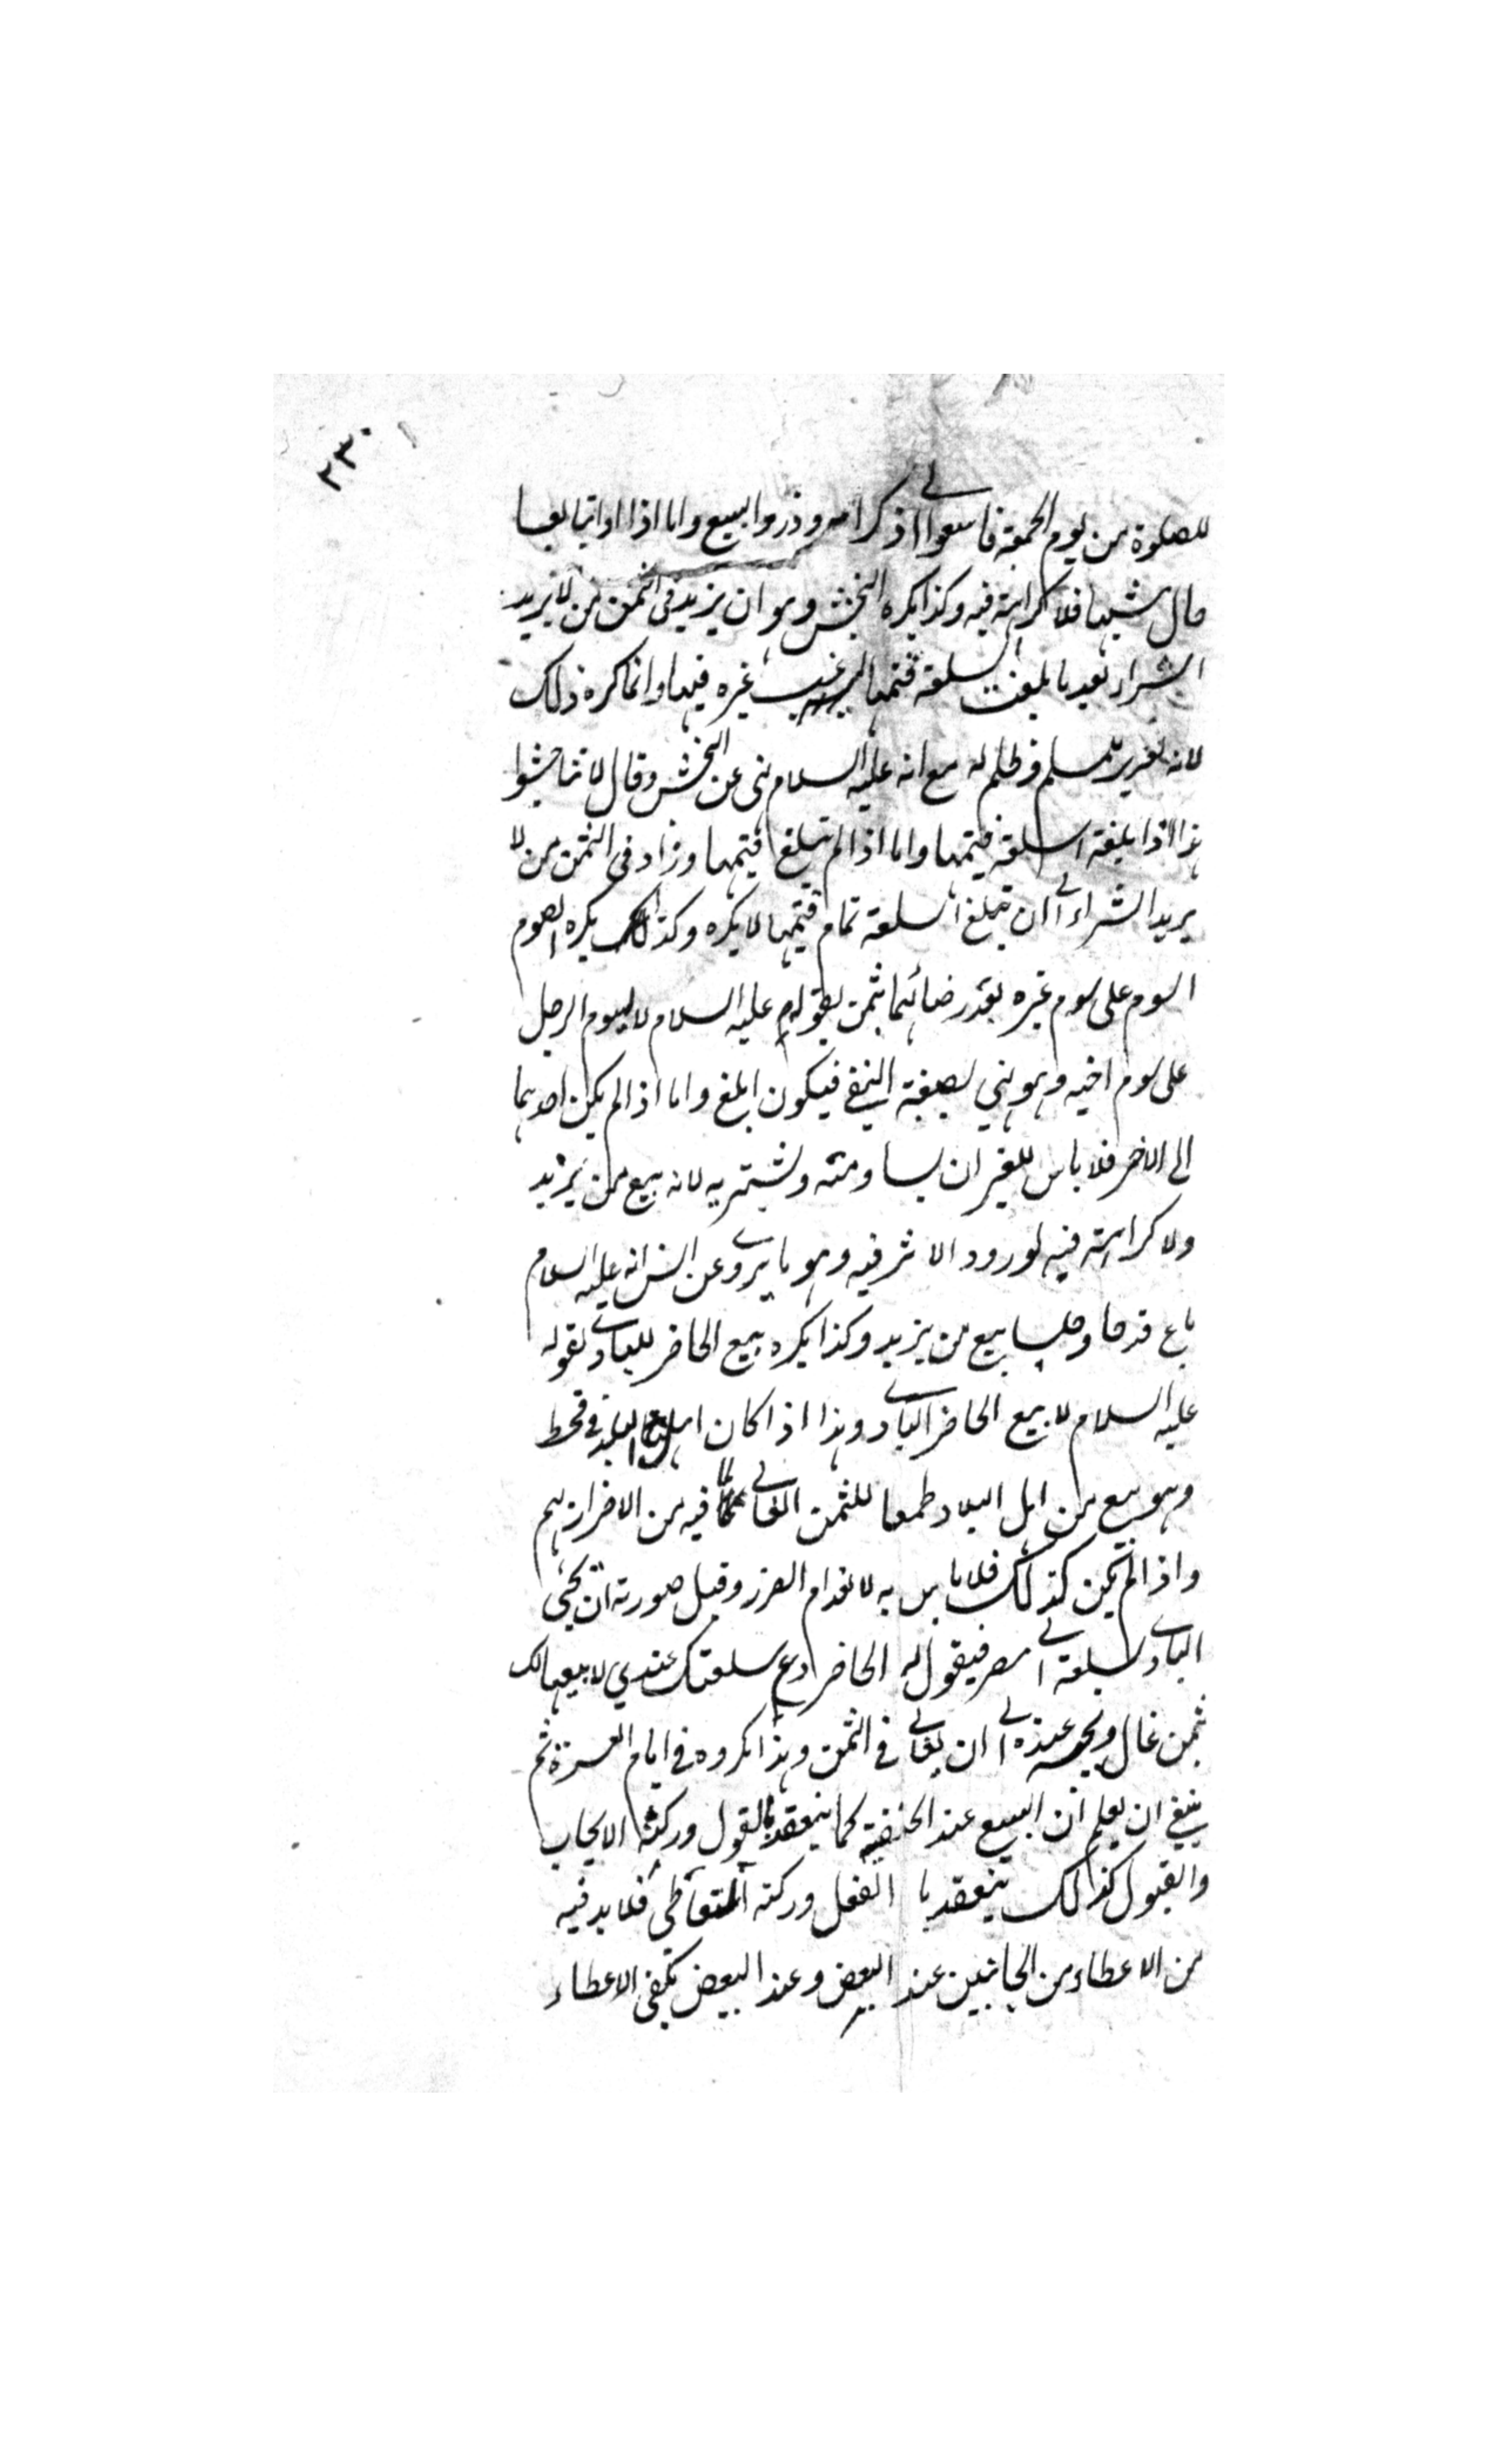 ٢٣٠
للصلوة من يوم الجمعة فاسعوا الى ذكر الله وذروا البيع واما اذا تبايعا
حال مشيهما فلا كراهة فيه وكذا يكره النجش وهو ان يزيد في الثمن من لا يريد
الشراء بعد ما بلغت السلعة قيمتها ليرغب غيره فيها وانما كره ذلك
لانه تغرير للمسلم وظلم له مع انه عليه السلام نهى عن النجش وقال لا تناجشوا
هذا اذا بلغت السلعة قيمتها واما اذا لم تبلغ قيمتها وزاد في الثمن من لا
يريد الشراء الى ان تبلغ السلعة تمام قيمتها لا يكره وكذلك يكره
السوم على سوم غيره بعد رضائهما بثمن لقوله عليه السلام لا يسوم الرجل
على سوم اخيه وهو نهي بصيغة النفي فيكون ابلغ واما اذا لم يكن احدهما
الى الاخر فلا باس للغير ان يساومه ويشتريه لانه بيع من يزيد
ولا كراهة فيه لورود الاثر فيه وهو ما يروى عن انس انه عليه السلام
باع قدحا وحلسا بيع من يزيد وكذا يكره بيع الحاضر للبادي لقوله
عليه السلام لا بيع الحاضر البادي وهذا اذا كان اهل البلد في قحط
وهو يبيع من اهل البلاد طمعا للثمن الغالي لما فيه من الاضرار بهم
واذا لم يكن كذلك فلا باس به لانعدام الضرر وقيل صورته ان يجئ
البادي بسلعة الى مصر فيقول له الحاضر دع سلعتك عندي لابيعها لك
بثمن غال عنده الى ان يغالي في الثمن وهذا مكروه في ايام العسرة ثم
ينبغي ان يعلم ان البيع عند الحنفية كما ينعقد بالقول وركنه الايجاب
والقبول كذلك ينعقد با الفعل وركنه التعاطي فلا بد فيه
من الاعطاء من الجانبين عند البعض وعند البعض يكفي الاعطاء